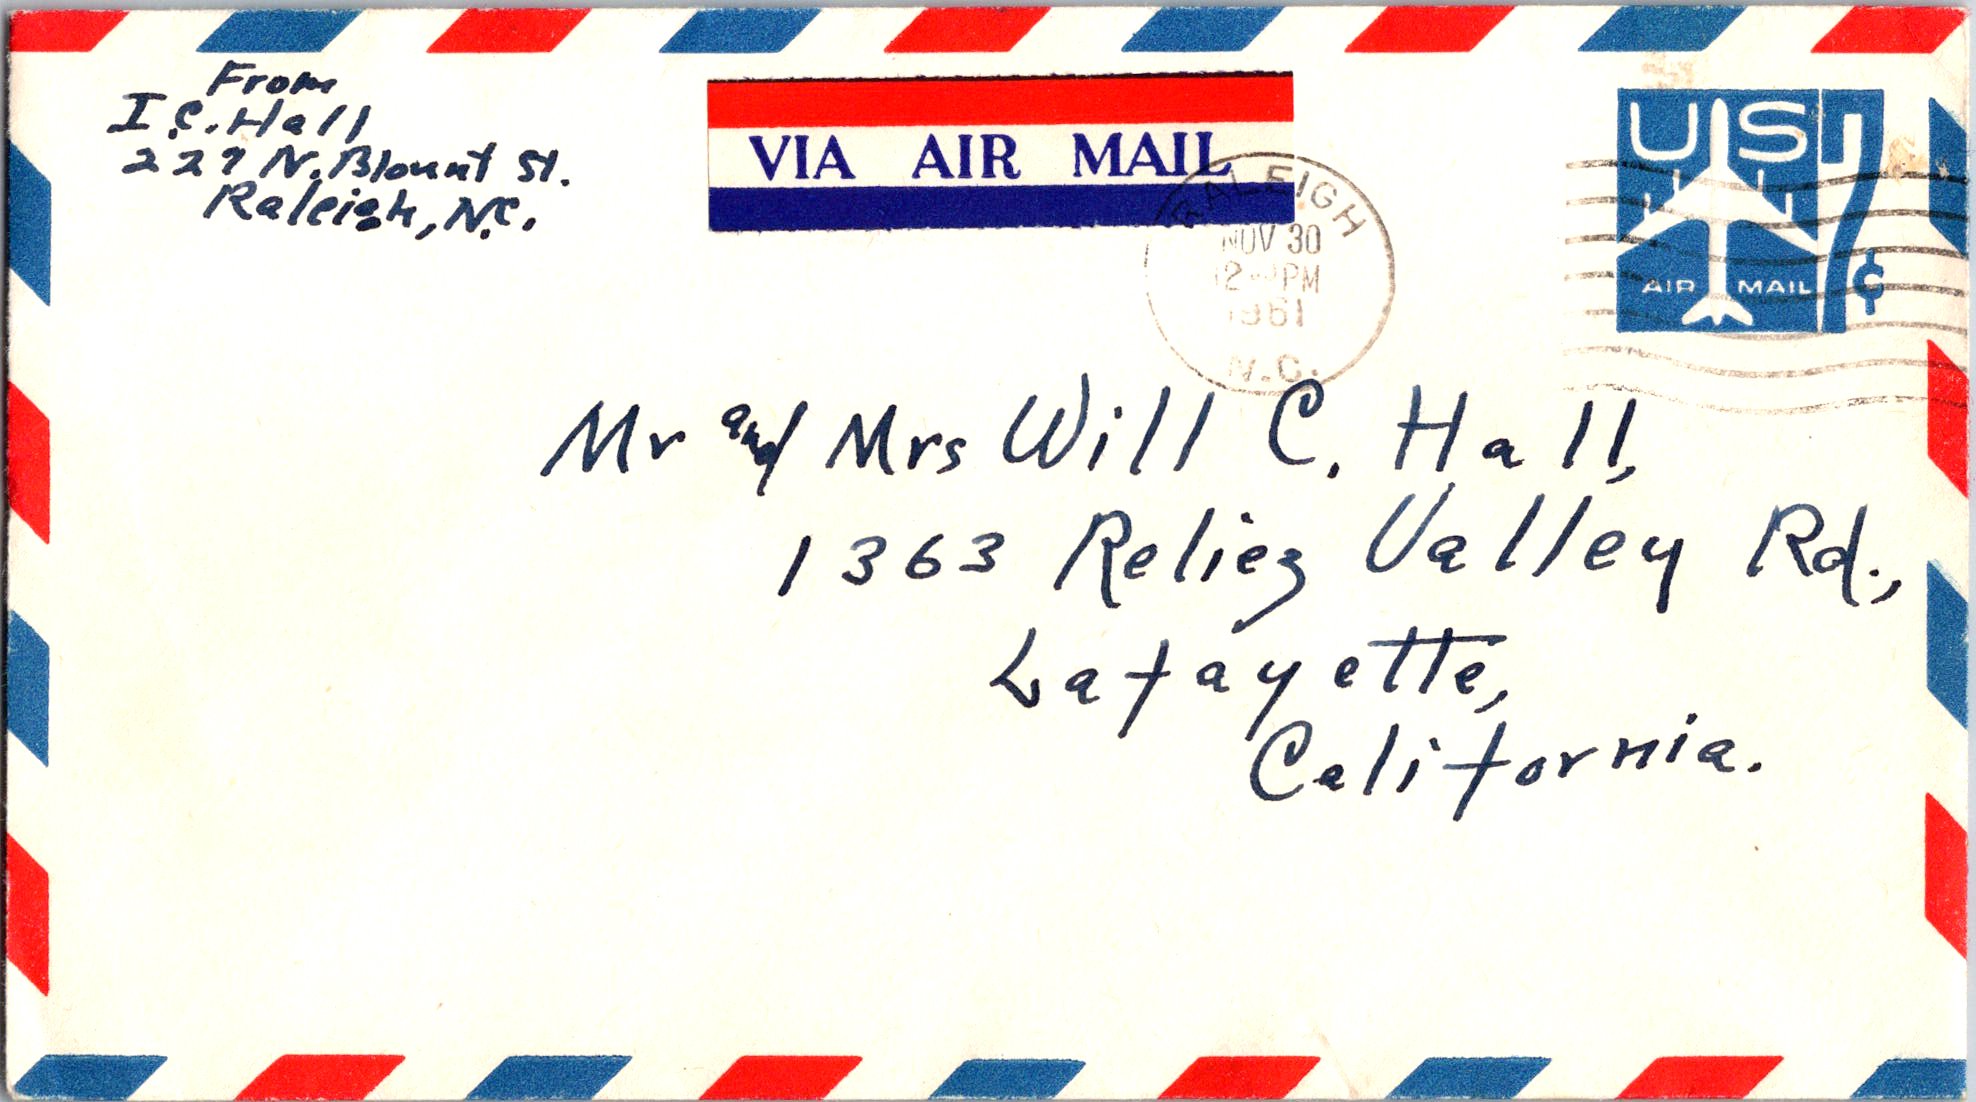 From
I.C. Hall
227 N. Blount St.
Raleigh, N.C.
VIA AIR MAIL
RALEIGH
NOV 30
PM
1961
N.C.
US 7¢
AIR MAIL
Mr and Mrs Will C. Hall,
1363 Reliez Valley Rd.,
Lafayette,
California.